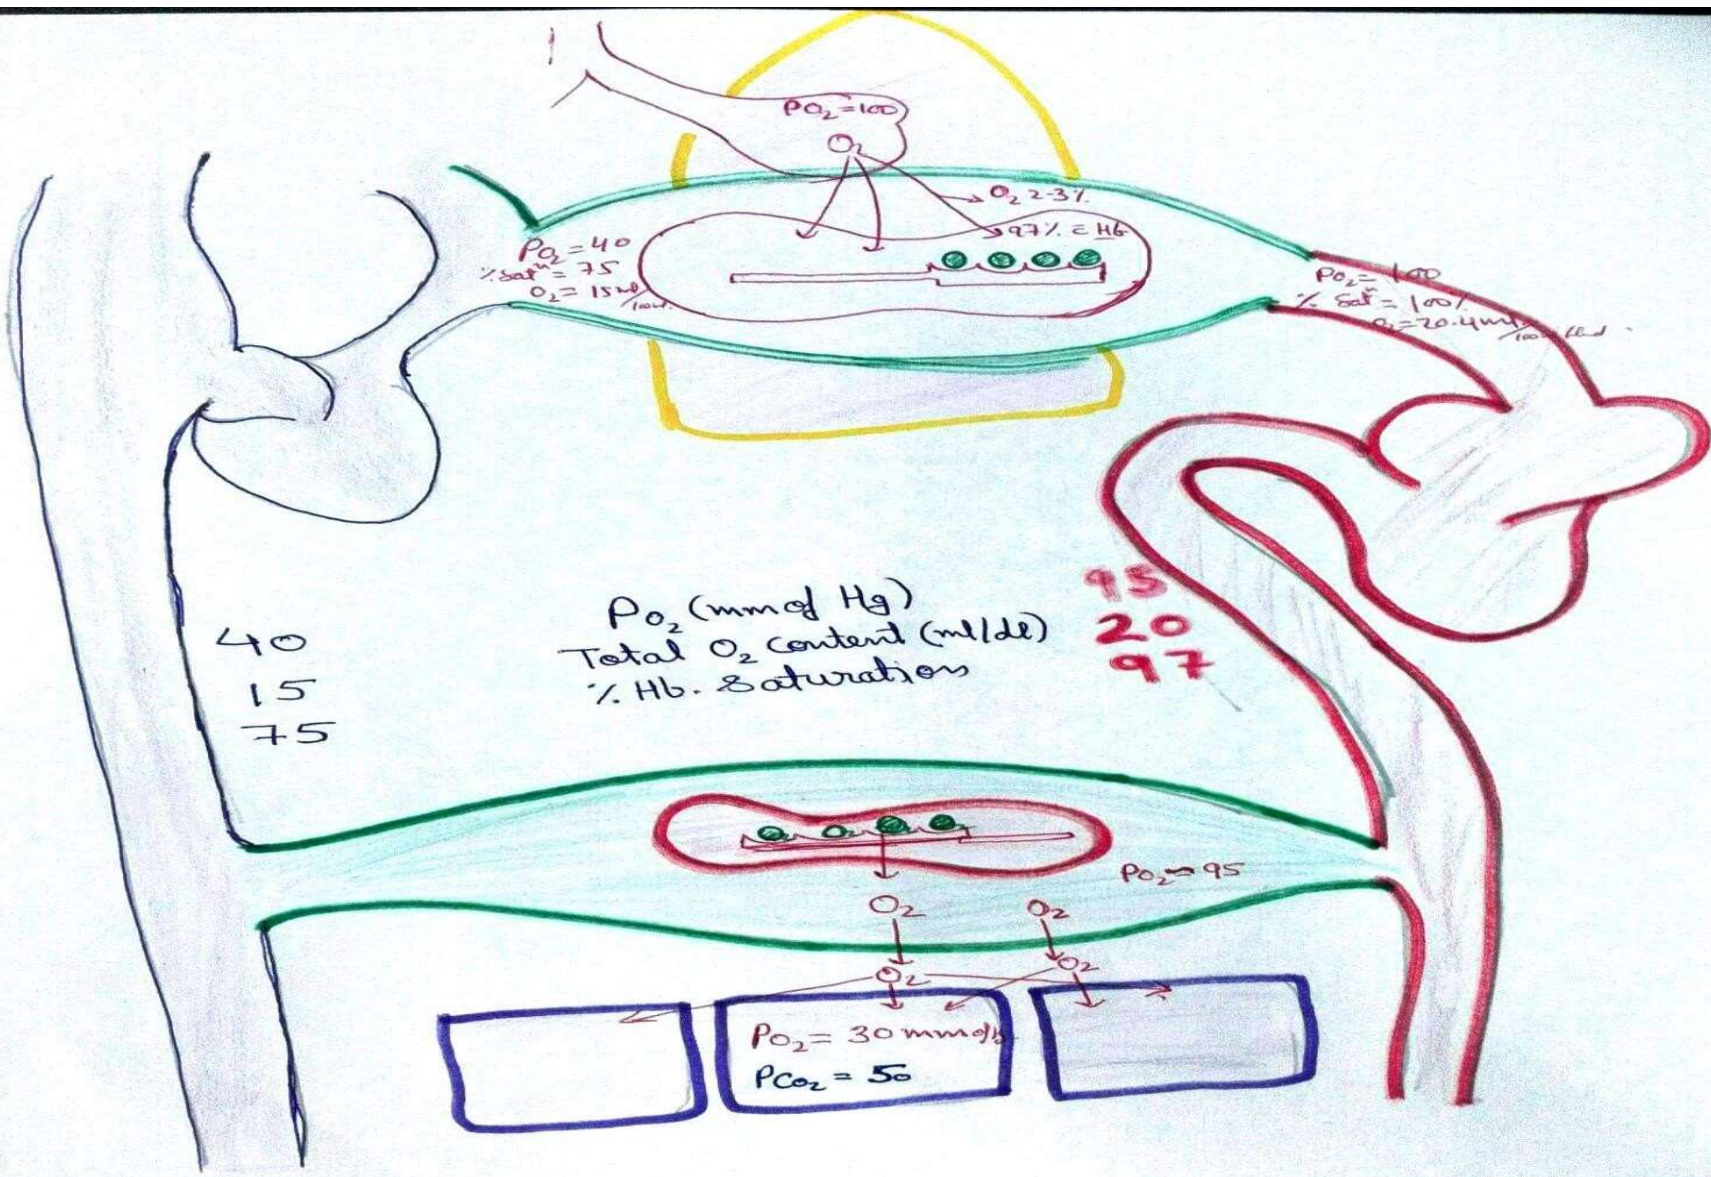 PO₂ = 100
O₂
O₂ 2-3%
97% c̄ Hb
PO₂ = 40
% Satⁿ = 75
O₂ = 15 ml/100ml.
PO₂ = 100
% Satⁿ = 100%
O₂ = 20.4 ml/100ml blood.
PO₂ (mm of Hg)
Total O₂ content (ml/dl)
% Hb. Saturation
95
20
97
40
15
75
PO₂ = 95
O₂
O₂
O₂
O₂
PO₂ = 30 mm of
PCO₂ = 50